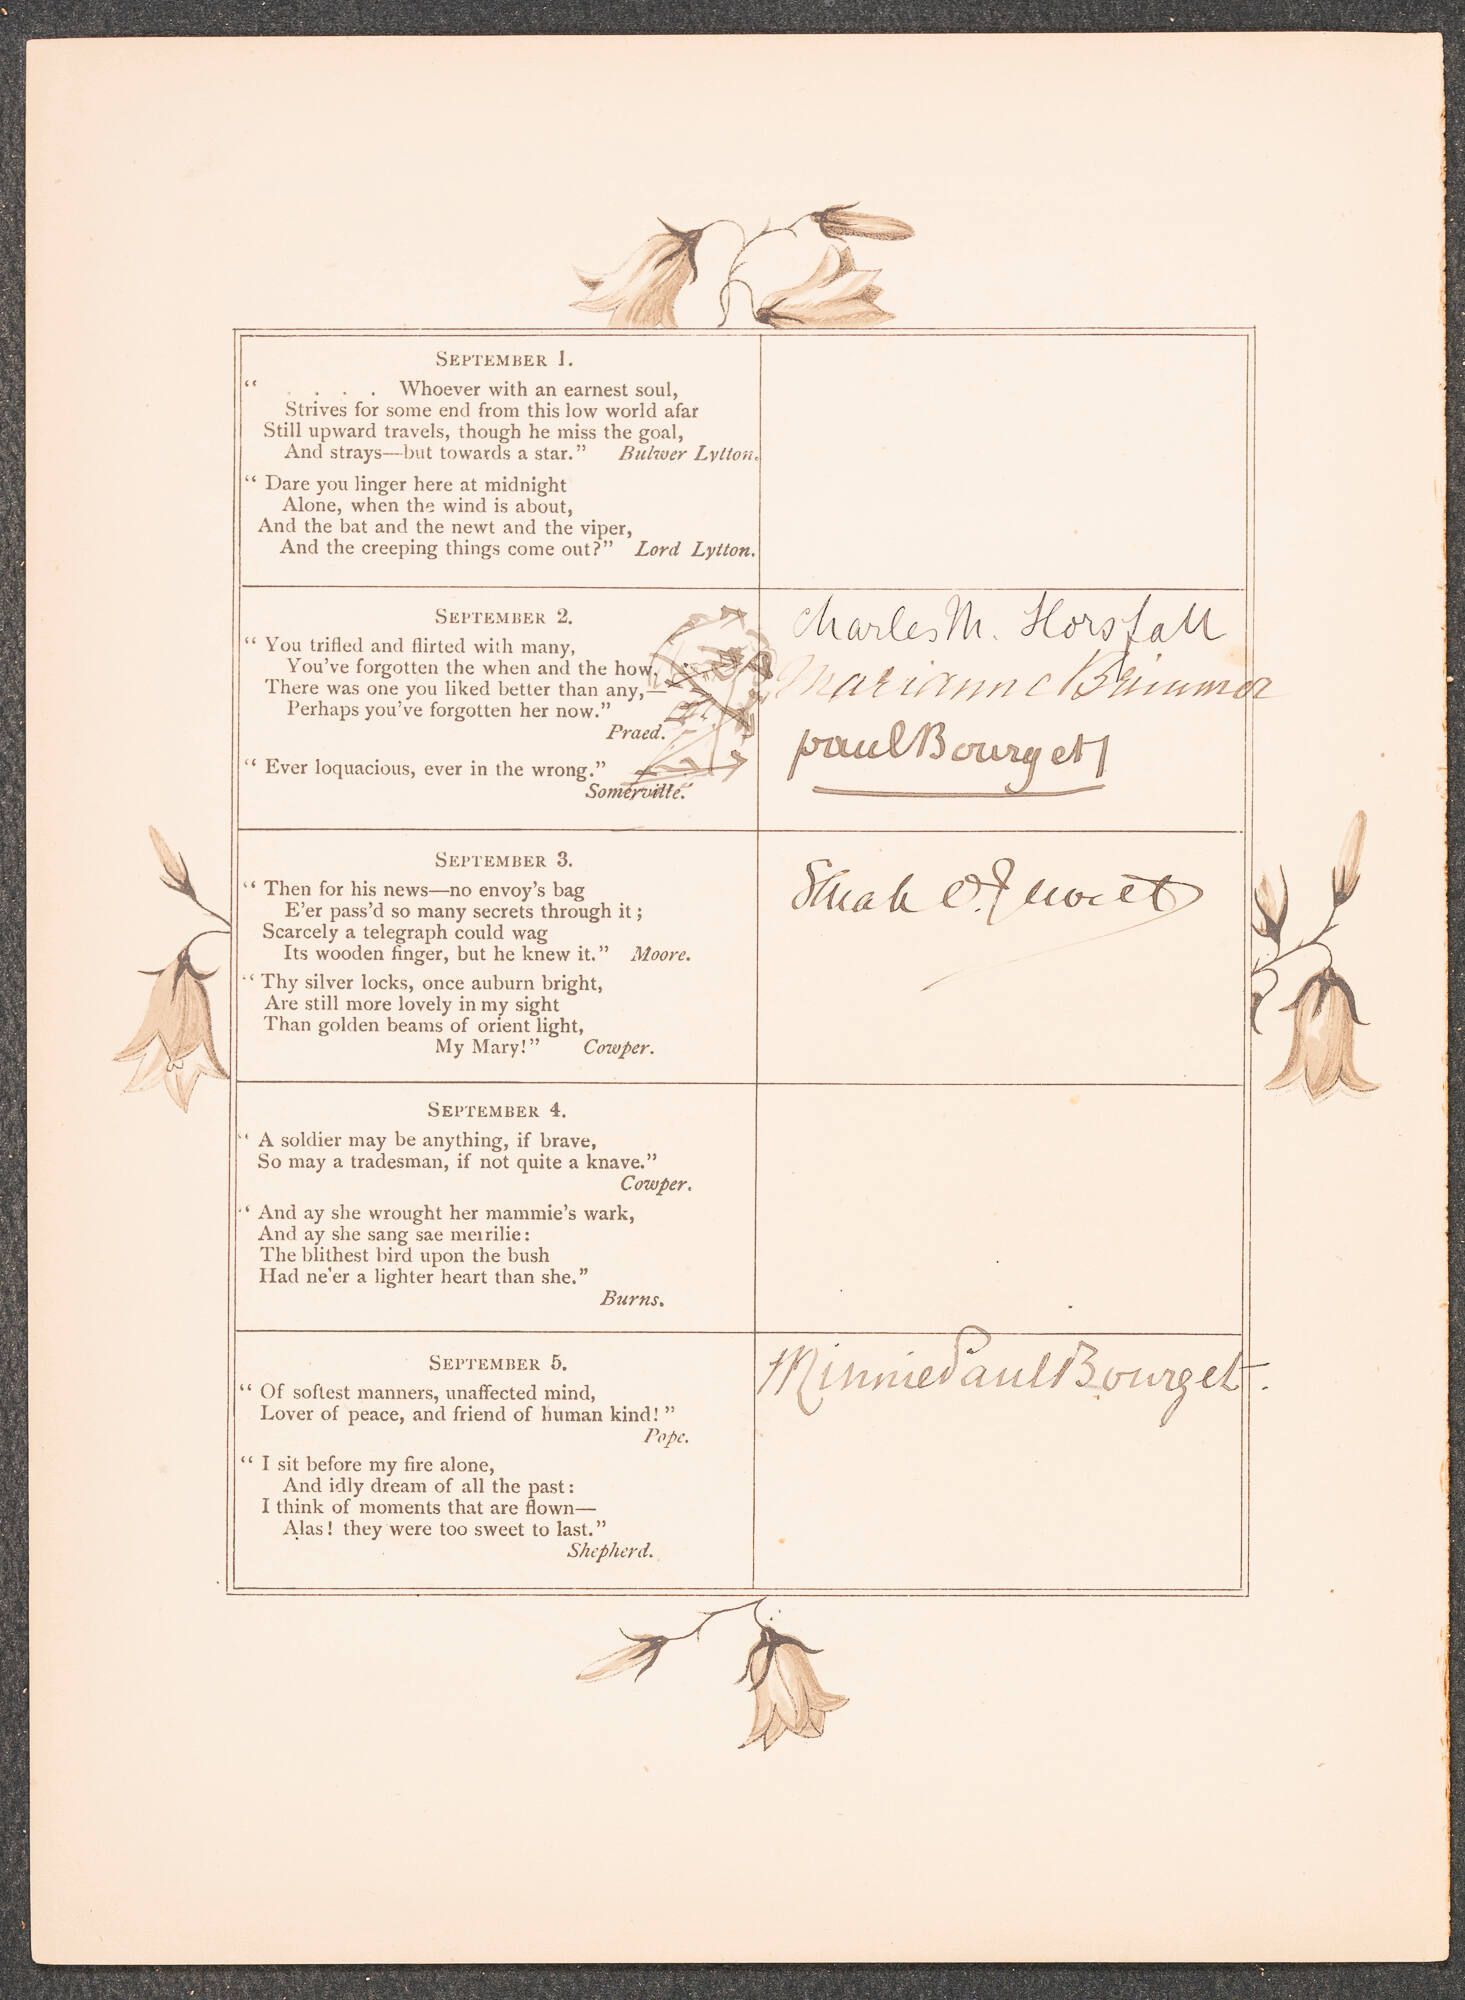 SEPTEMBER 1.
“ . . . . Whoever with an earnest soul,
Strives for some end from this low world afar
Still upward travels, though he miss the goal,
And strays—but towards a star.” Bulwer Lytton.
“ Dare you linger here at midnight
Alone, when the wind is about,
And the bat and the newt and the viper,
And the creeping things come out?” Lord Lytton.
SEPTEMBER 2.
“ You trifled and flirted with many,
You’ve forgotten the when and the how,
There was one you liked better than any,—
Perhaps you’ve forgotten her now.”
Praed.
“ Ever loquacious, ever in the wrong.”
Somerville.
Charles M. Horsfall
Marianne Brimmer
Paul Bourget
SEPTEMBER 3.
“ Then for his news—no envoy’s bag
E’er pass’d so many secrets through it ;
Scarcely a telegraph could wag
Its wooden finger, but he knew it.” Moore.
“ Thy silver locks, once auburn bright,
Are still more lovely in my sight
Than golden beams of orient light,
My Mary!” Cowper.
Sarah O. Jewett
SEPTEMBER 4.
“ A soldier may be anything, if brave,
So may a tradesman, if not quite a knave.”
Cowper.
“ And ay she wrought her mammie’s wark,
And ay she sang sae merrilie :
The blithest bird upon the bush
Had ne’er a lighter heart than she.”
Burns.
SEPTEMBER 5.
“ Of softest manners, unaffected mind,
Lover of peace, and friend of human kind! ”
Pope.
“ I sit before my fire alone,
And idly dream of all the past :
I think of moments that are flown—
Alas ! they were too sweet to last.”
Shepherd.
Minnie Paul Bourget.